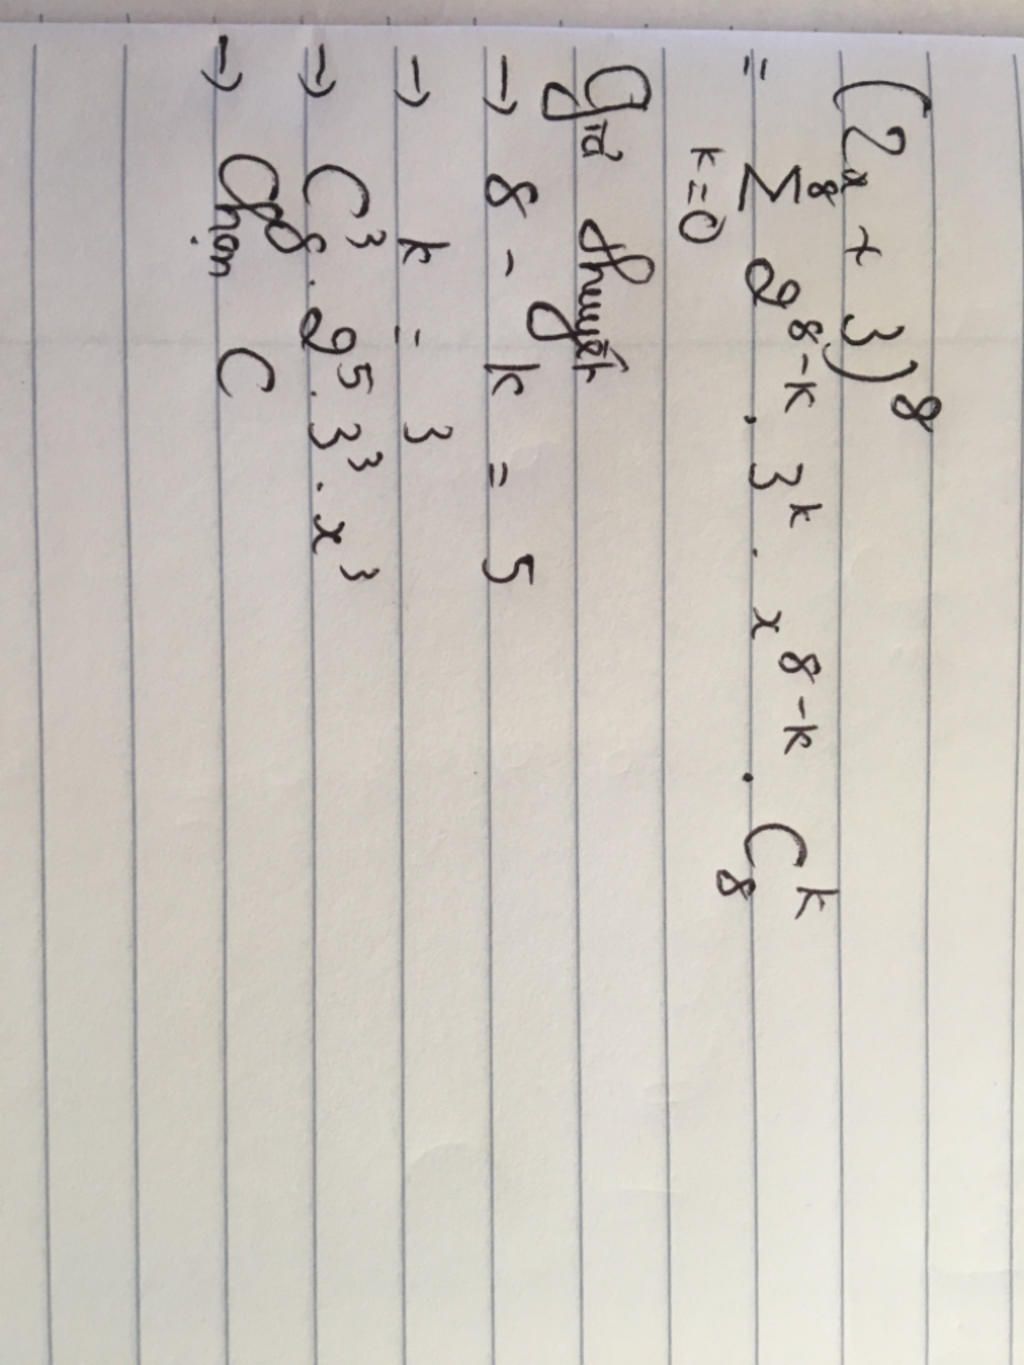 (2x + 3)⁸
= ⁸Σₖ₌₀ 2⁸⁻ᵏ . 3ᵏ . x⁸⁻ᵏ . C₈ᵏ
Giả thuyết
→ 8 - k = 5
→ k = 3
→ C³₈ . 2⁵ . 3³ . x³
→ Chọn C